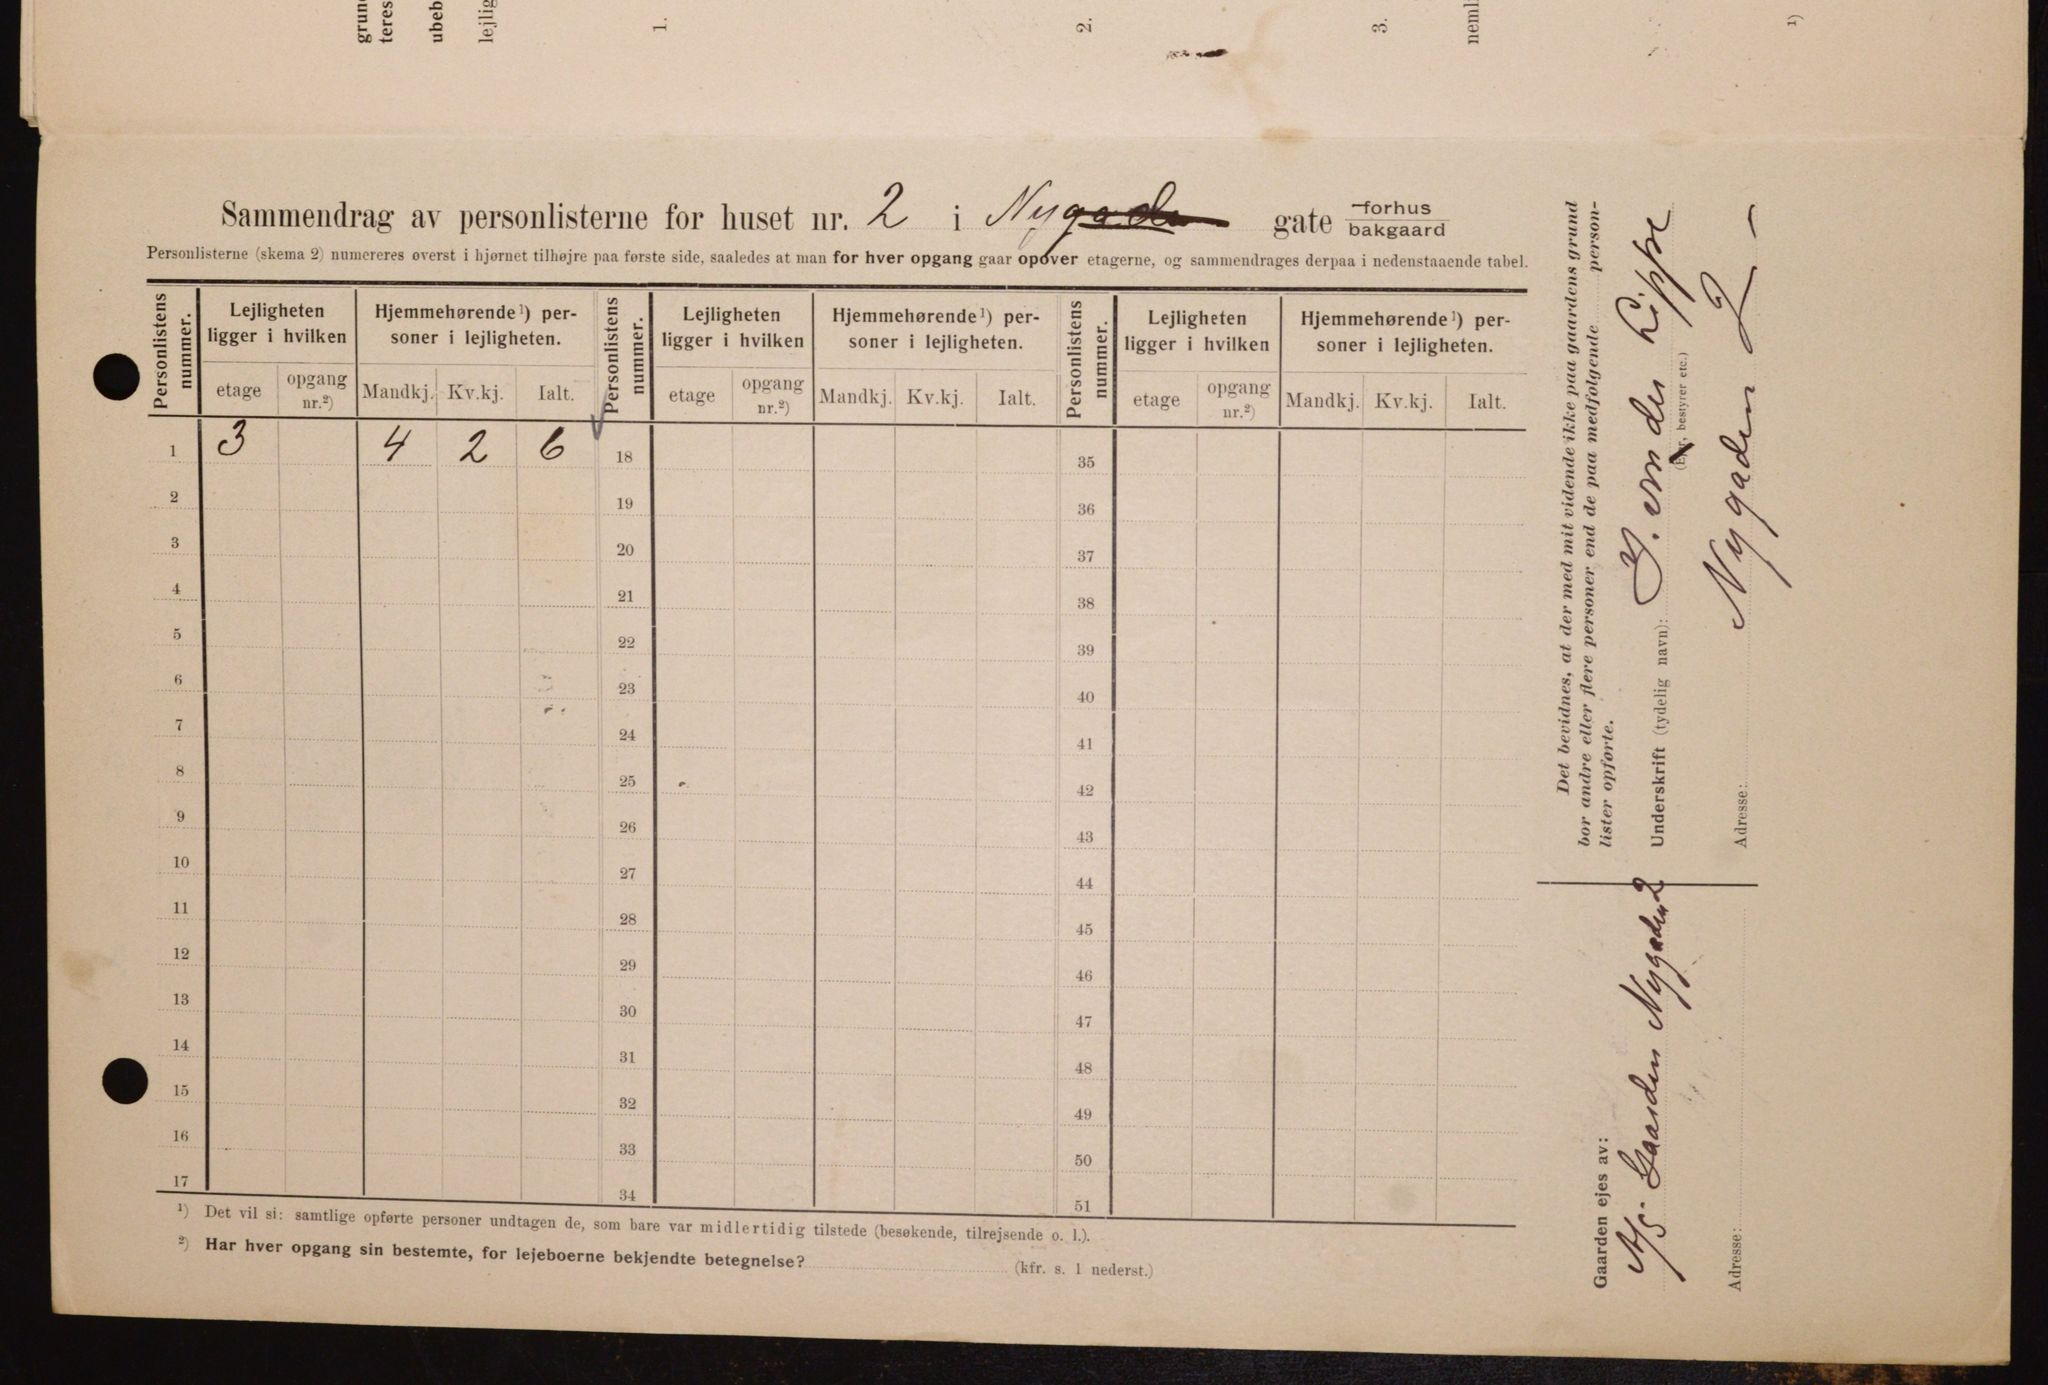 grun
teres
ubeb
lejlig
1.
2.
3.
neml
1)
Sammendrag av personlisterne for huset nr. 2 i Nygaden gate forhus
bakgaard
Personlisterne (skema 2) numereres øverst i hjørnet tilhøjre paa første side, saaledes at man for hver opgang gaar opover etagerne, og sammendrages derpaa i nedenstaaende tabel.
Personlistens nummer. Lejligheten ligger i hvilken Hjemmehørende¹) per-soner i lejligheten. Personlistens nummer. Lejligheten ligger i hvilken Hjemmehørende¹) per-soner i lejligheten. Personlistens nummer. Lejligheten ligger i hvilken Hjemmehørende¹) per-soner i lejligheten.
etage opgang nr.²) Mandkj. Kv.kj. Ialt. etage opgang nr.²) Mandkj. Kv.kj. Ialt. etage opgang nr.²) Mandkj. Kv.kj. Ialt.
1 3 4 2 6 18 35
2 19 36
3 20 37
4 21 38
5 22 39
6 23 40
7 24 41
8 25 42
9 26 43
10 27 44
11 28 45
12 29 46
13 30 47
14 31 48
15 32 49
16 33 50
17 34 51
¹) Det vil si: samtlige opførte personer undtagen de, som bare var midlertidig tilstede (besøkende, tilrejsende o. l.).
²) Har hver opgang sin bestemte, for lejeboerne bekjendte betegnelse? (kfr. s. 1 nederst.)
Det bevidnes, at der med mit vidende ikke paa gaardens grund
bor andre eller flere personer end de paa medfølgende person-
lister opførte.
Underskrift (tydelig navn): J. von der Lippe
(Ejer, bestyrer etc.)
Adresse: Nygaden 2 –
Gaarden ejes av:
A/S Gaarden Nygaden 2
Adresse: